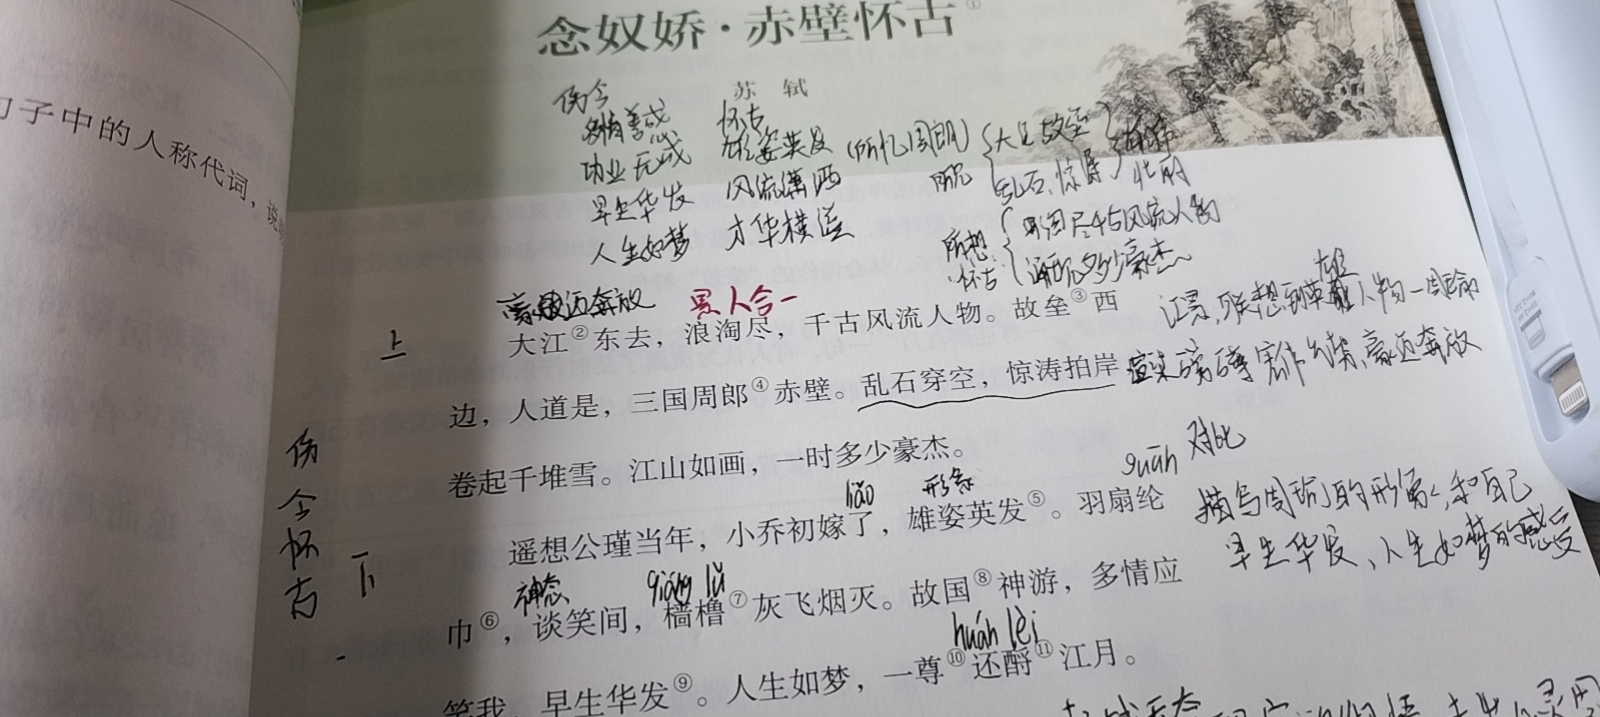 句子中的人称代词，说
念奴娇·赤壁怀古①
苏 轼
伤今
多情善感
功业无成
早生华发
人生如梦
怀古
雄姿英发（所忆周郎）
风流潇洒
才华横溢
所见
大江 故垒
乱石、惊涛
雄伟
壮丽
所想
怀古
周郎 千古风流人物
多少豪杰
豪迈奔放 景人合一
上
大江②东去，浪淘尽，千古风流人物。故垒③西
江景，联想到英雄人物—周瑜
边，人道是，三国周郎④赤壁。乱石穿空，惊涛拍岸，
渲染磅礴 豪迈奔放
卷起千堆雪。江山如画，一时多少豪杰。
liǎo 形象 guān 对比
遥想公瑾当年，小乔初嫁了，雄姿英发⑤。羽扇纶
描写周瑜的形象，和自己
早生华发、人生如梦的感受
伤今怀古
下
神态 qiáng lǔ
巾⑥，谈笑间，樯橹⑦灰飞烟灭。故国⑧神游，多情应
huán lèi
笑我，早生华发⑨。人生如梦，一尊⑩还酹⑪江月。